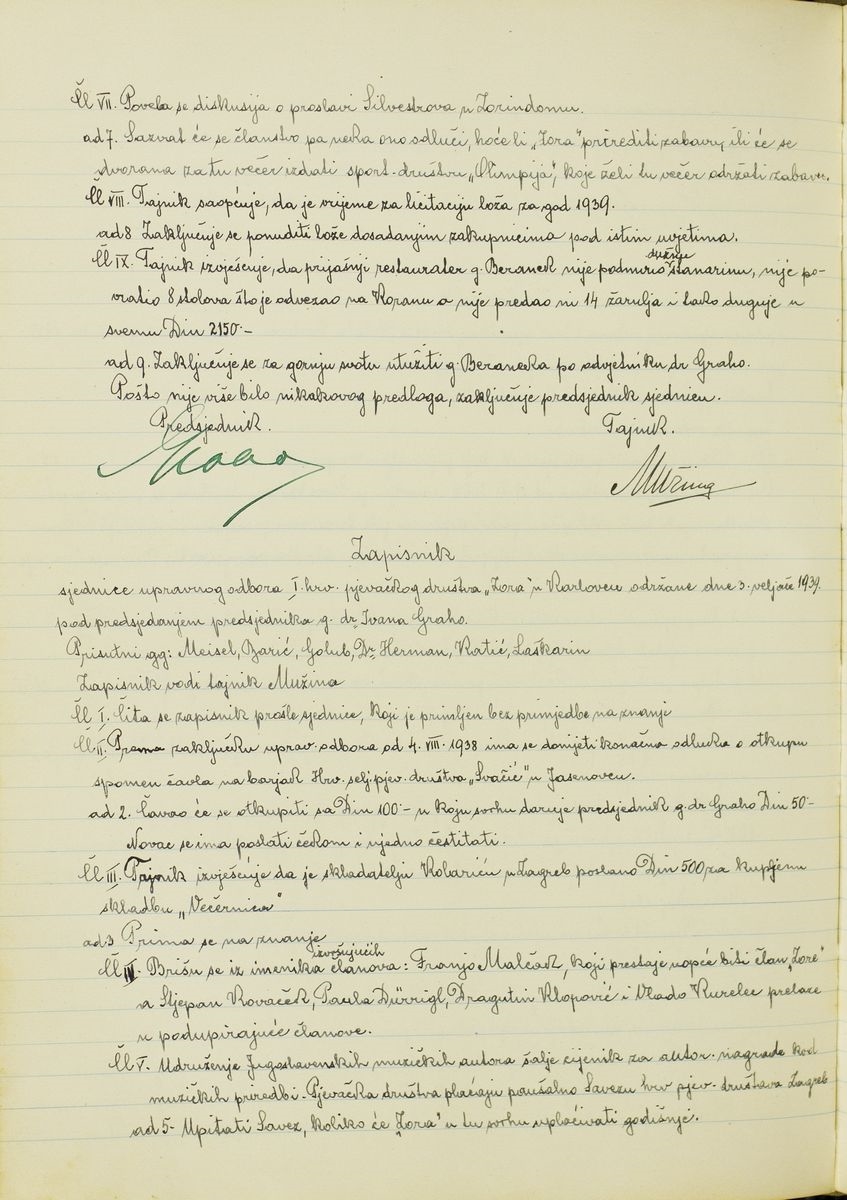 Čl VII. Povela se diskusija o proslavi Silvestrova u Zorindomu.
ad 7. Sazvat će se članstvo pa neka ono odluči, hoće li „Zora" prirediti zabavu, ili će se
dvorana za tu večer izdati sport. društvu „Olimpija", koje želi tu večer održati zabavu.
Čl VIII. Tajnik saopćuje, da je vrijeme za licitaciju loža za god 1939.
ad 8 Zaključuje se ponuditi lože dosadanjim zakupnicima pod istim uvjetima.
Čl IX. Tajnik izvješćuje, da prijašnji restaurater g. Beranek nije podmirio dužnu stanarinu, nije po-
vratio 8 stolova što je odvezao na Koranu a nije predao ni 14 žarulja i tako duguje u
svemu Din 2150.-
ad 9. Zaključuje se za gornju svotu utužiti g. Beraneka po odvjetniku dr Graho.
Pošto nije više bilo nikakovog predloga, zaključuje predsjednik sjednicu.
Predsjednik. Tajnik.
Graho Mužina
Zapisnik
sjednice upravnog odbora I. hrv. pjevačkog društva „Zora" u Karlovcu održane dne 3. veljače 1939.
pod predsjedanjem predsjednika g. dr Ivana Graho.
Prisutni gg: Meisel, Barić, Golub, Dr Herman, Katić, Laškarin
Zapisnik vodi tajnik Mužina
Čl I. Čita se zapisnik prošle sjednice, koji je primljen bez primjedbe na znanje
Čl II. Prema zaključku uprav. odbora od 4. VIII. 1938 ima se donijeti konačna odluka o otkupu
spomen čavla na barjak Hrv. selj. pjev. društva „Svačić" u Jasenovcu.
ad 2. Čavao će se otkupiti sa Din 100.- u koju svrhu daruje predsjednik g. dr Graho Din 50.-
Novac se ima poslati čekom i ujedno čestitati.
Čl III. Tajnik izvješćuje da je skladatelju Kolariću u Zagreb poslano Din 500 za kupljenu
skladbu „Večernica"
ad 3 Prima se na znanje
Čl IV. Brišu se iz imenika izvršujućih članova: Franjo Malčak, koji prestaje uopće biti član „Zore"
a Stjepan Kovaček, Paula Dürrigl, Dragutin Klopović i Vlado Kurelec prelaze
u podupirajuće članove.
Čl V. Udruženje Jugoslavenskih muzičkih autora šalje cijenik za autor. nagrade kod
muzičkih priredbi. Pjevačka društva plaćaju paušalno Savezu hrv pjev. društava Zagreb
ad 5. Upitati Savez, koliko će „Zora" u tu svrhu uplaćivati godišnje.